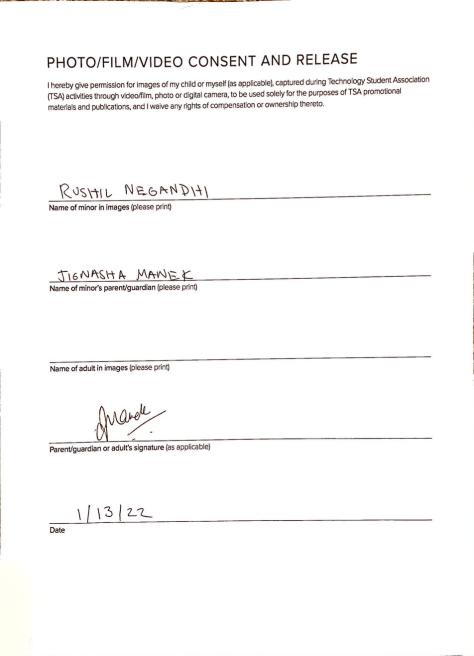 PHOTO/FILM/VIDEO CONSENT AND RELEASE
I hereby give permission for images of my child or myself (as applicable), captured during Technology Student Association
(TSA) activities through video/film, photo or digital camera, to be used solely for the purposes of TSA promotional
materials and publications, and I waive any rights of compensation or ownership thereto.
RUSHIL NEGANDHI
Name of minor in images (please print)
JIGNASHA MANEK
Name of minor's parent/guardian (please print)
Name of adult in images (please print)
Parent/guardian or adult's signature (as applicable)
1/13/22
Date